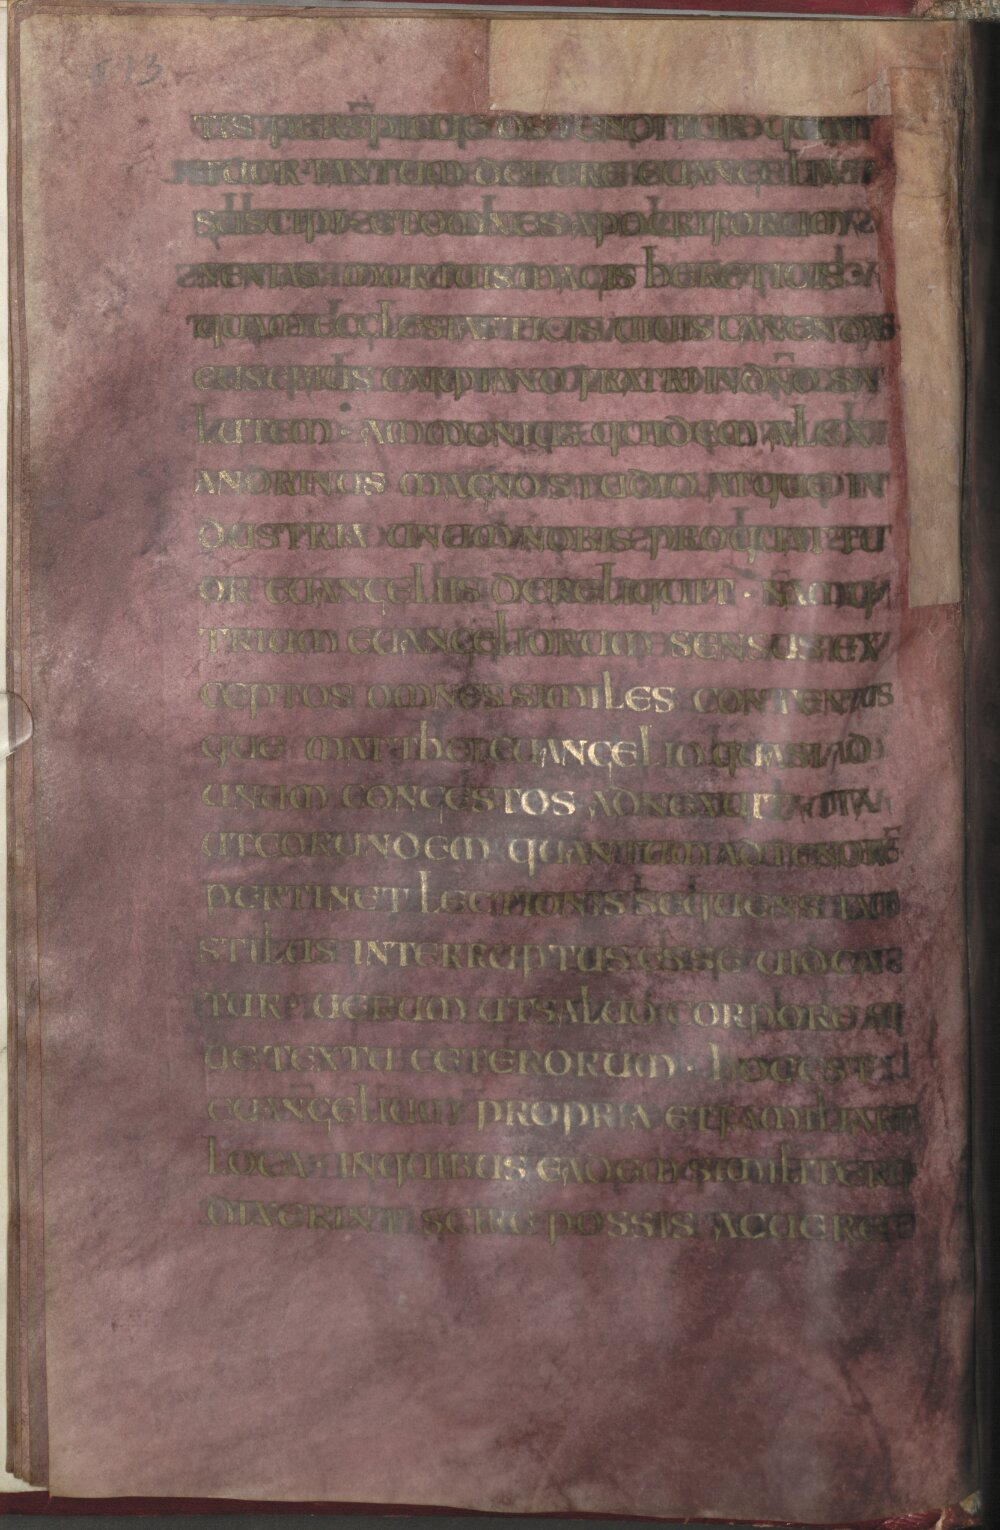 TIS PERSPICUE OSTENDITUR QUAT
TUOR TANTUM DEBERE EUANGELIA
SUSCIPI ET OMNES APOCRIFORUM
NENIAS MORTUIS MAGIS HERETICIS
QUAM ECCLESIASTICIS UIUIS CANENDAS
EUSEBIUS CARPIANO FRATRI IN DN̄O SA
LUTEM · AMMONIUS QUIDEM ALEX
ANDRINUS MAGNO STUDIO ATQUE IN
DUSTRIA UNUM NOBIS PRO QUATTU
OR EUANGELIIS DERELIQUIT · NAMQ
TRIUM EUANGELIORUM SENSUS EX
CEPTOS OMNES SIMILES CONTEXTUS
QUE MATTHEI EUANGELIO QUASI AD
UNUM CONGESTOS ADNEXUIT ITA
UT EORUNDEM QUANTUM AD TENORĒ
PERTINET LECTIONIS SEQUENS IAM
STILUS INTERRUPTUS ESSE UIDEA
TUR · UERUM UT SALUO CORPORE SI
UE TEXTU CETERORUM · HOC EST
EUANGELIUM PROPRIA ET FAMILIARIA
LOCA · IN QUIBUS EADEM SIMILITER
DIXERINT SCIRE POSSIS AC UERE